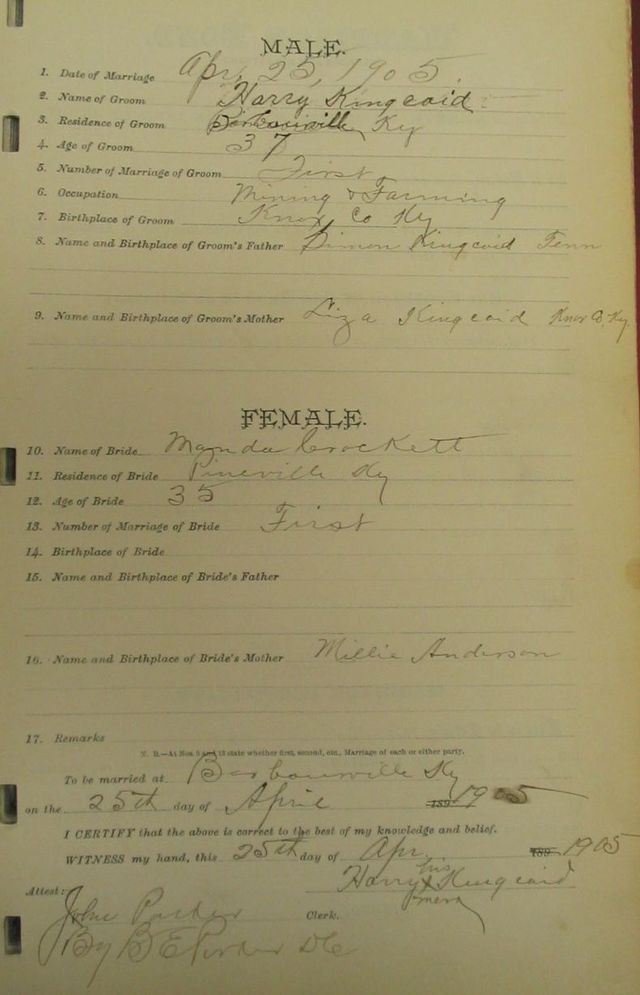 MALE.
1. Date of Marriage Apr, 25, 1905.
2. Name of Groom Harry Kingcaid
3. Residence of Groom Barbourville, Ky
4. Age of Groom 37
5. Number of Marriage of Groom First
6. Occupation Mining & Farming
7. Birthplace of Groom Knox Co Ky
8. Name and Birthplace of Groom's Father Simon Kingcaid Tenn
9. Name and Birthplace of Groom's Mother Liza Kingcaid Knox Co. Ky.
FEMALE.
10. Name of Bride Manda Crockett
11. Residence of Bride Pineville Ky
12. Age of Bride 35
13. Number of Marriage of Bride First
14. Birthplace of Bride
15. Name and Birthplace of Bride's Father
16. Name and Birthplace of Bride's Mother Millie Anderson
17. Remarks
N. B.—At Nos. 5 and 13 state whether first, second, etc., Marriage of each or either party.
To be married at Barbourville Ky
on the 25th day of April 189 1905
I CERTIFY that the above is correct to the best of my knowledge and belief.
WITNESS my hand, this 25th day of Apr. 189 1905
his
Harry X Kingcaid
mark
Attest:
John Parker Clerk.
By B E Parker DC